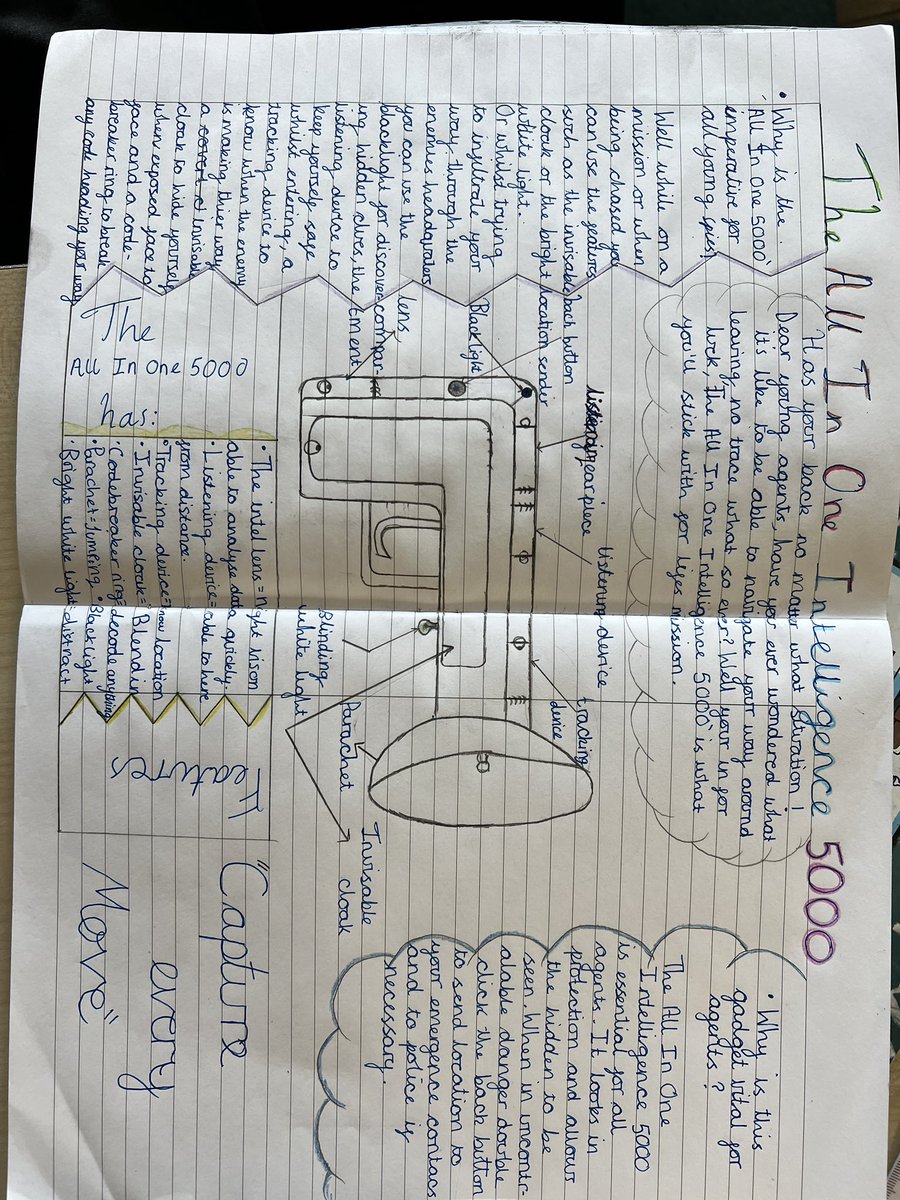 The All In One Intelligence 5000
Has your back no matter what situation!
Dear young agents, have you ever wondered what
it's like to be able to navigate your way around
leaving no trace what so ever? Well your in for
luck, The All In One Intelligence 5000 is what
you'll stick with for lifes mission.
• Why is the
'All In One 5000'
imperative for
all young spies?
Well while on a
mission or when
being chased you
can use the features
such as the invisable
cloak or the bright
white light.
Or whilst trying
to infultrate your
way through the
enemies headquaters
you can use the
blacklight for discover-
ing hidden clues, the
listening device to
keep yourself safe
whilst entering, a
tracking device to
know when the enemy
is making thier way
a invisable
cloak to hide yourself
when exposed face to
face and a code-
breaker ring to break
any code heading your way
back button
location sender
Blacklight
lens
compar-
tment
earpiece
listening device
tracking
device
Blinding
white light
Parachet
Invisable
cloak
The
All In One 5000
has:
• The intel lens = night vison
able to analyse data quickly.
• Listening device = able to here
from distance.
• Tracking device = now location
• Invisable cloak = Blend in
• Codebreaker ring = decode anything
• Parachet = Jumping • Blacklight
• Bright white light = distract
Features
• Why is this
gadget vital for
agents?
The All In One
Intelligence 5000
is essential for all
agents. It looks in
protection and allows
the hidden to be
seen. When in uncontr-
alable danger double
click the back button
to send location to
your emergence contacs
and to police if
necessary.
"Capture
every
Move"